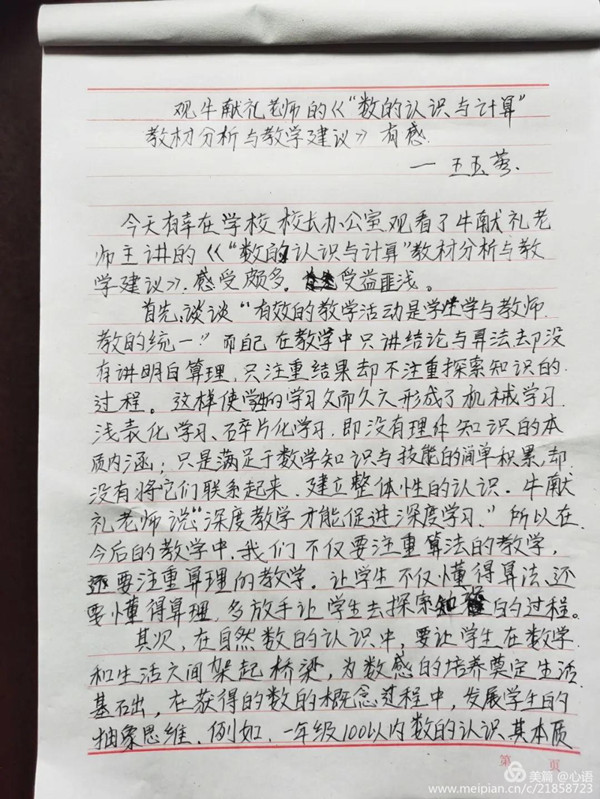 观牛献礼老师的《“数的认识与计算”
教材分析与教学建议》有感.
— 王玉
今天有幸在学校校长办公室观看了牛献礼老
师主讲的《“数的认识与计算”教材分析与教
学建议》.感受颇多.受益匪浅。
首先,谈谈“有效的教学活动是学生学与教师
教的统一”.而自己在教学中只讲结论与算法却没
有讲明白算理,只注重结果却不注重探索知识的
过程。这样使学生的学习久而久之形成了机械学习.
浅表化学习、碎片化学习.即没有理解知识的本
质内涵;只是满足于数学知识与技能的简单积累,却
没有将它们联系起来.建立整体性的认识.牛献
礼老师说:“深度教学才能促进深度学习.”所以在
今后的教学中.我们不仅要注重算法的教学,
还要注重算理的教学.让学生不仅懂得算法、还
要懂得算理,多放手让学生去探索知识的过程。
其次,在自然数的认识中,要让学生在数学
和生活之间架起桥梁,为数感的培养奠定生活
基础,在获得的数的概念过程中,发展学生的
抽象思维.例如.一年级100以内数的认识.其本质
第 页
美篇 @心语
www.meipian.cn/c/21858723